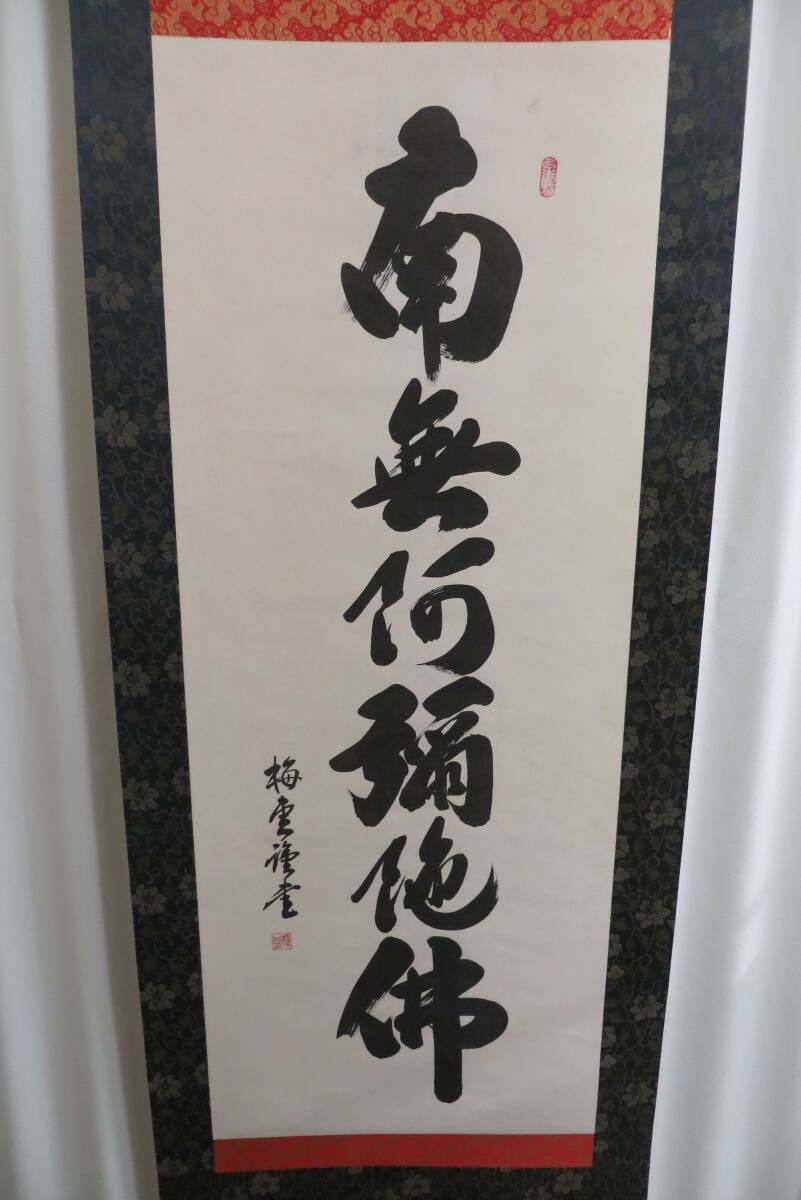 南無阿彌陀佛
梅雲謹書